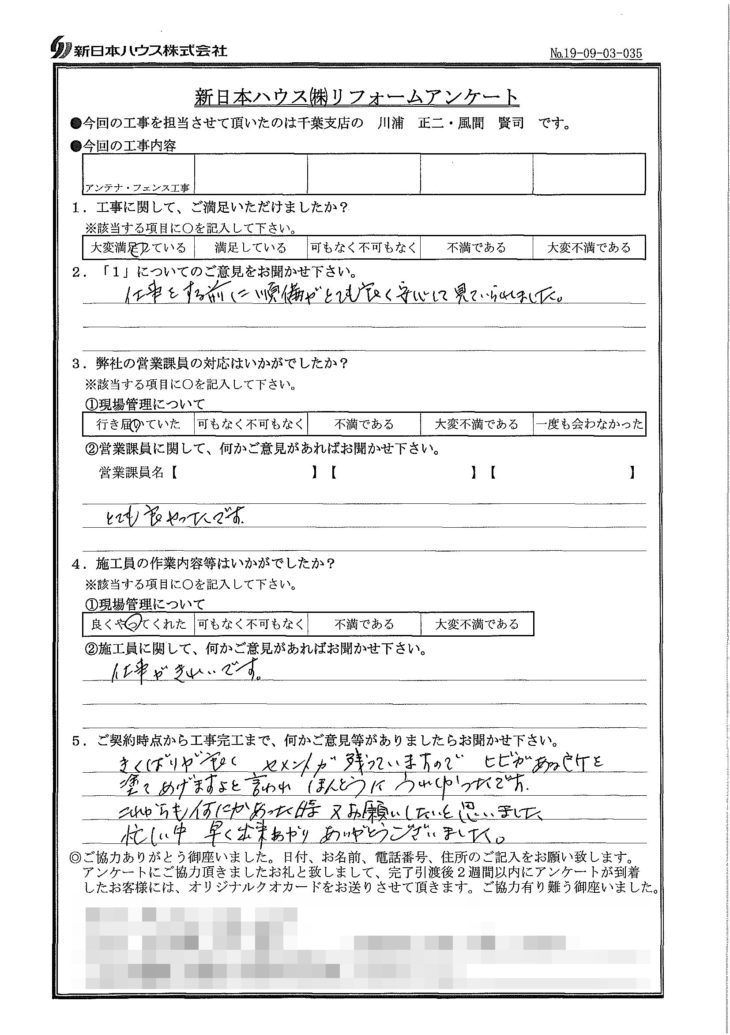 新日本ハウス株式会社
№19-09-03-035
新日本ハウス㈱リフォームアンケート
●今回の工事を担当させて頂いたのは千葉支店の 川浦 正二・風間 賢司 です。
●今回の工事内容
アンテナ・フェンス工事
1．工事に関して、ご満足いただけましたか？
※該当する項目に○を記入して下さい。
大変満足している 満足している 可もなく不可もなく 不満である 大変不満である
2．「1」についてのご意見をお聞かせ下さい。
仕事をする前に順備がとても良く安心して見ていられました。
3．弊社の営業課員の対応はいかがでしたか？
※該当する項目に○を記入して下さい。
①現場管理について
行き届いていた 可もなく不可もなく 不満である 大変不満である 一度も会わなかった
②営業課員に関して、何かご意見があればお聞かせ下さい。
営業課員名【 】【 】【 】
とても良かったです。
4．施工員の作業内容等はいかがでしたか？
※該当する項目に○を記入して下さい。
①現場管理について
良くやってくれた 可もなく不可もなく 不満である 大変不満である
②施工員に関して、何かご意見があればお聞かせ下さい。
仕事がきれいです。
5．ご契約時点から工事完工まで、何かご意見等がありましたらお聞かせ下さい。
きくばりが良く セメントが残っていますので ヒビがある所を
塗てあげますよと言われ ほんとうに うれしかったです。
これからも何にかあった時 又お願いしたいと思いました
忙しい中 早く出来あがり ありがとうございました。
◎ご協力ありがとう御座いました。日付、お名前、電話番号、住所のご記入をお願い致します。
アンケートにご協力頂きましたお礼と致しまして、完了引渡後２週間以内にアンケートが到着
したお客様には、オリジナルクオカードをお送りさせて頂きます。ご協力有り難う御座いました。